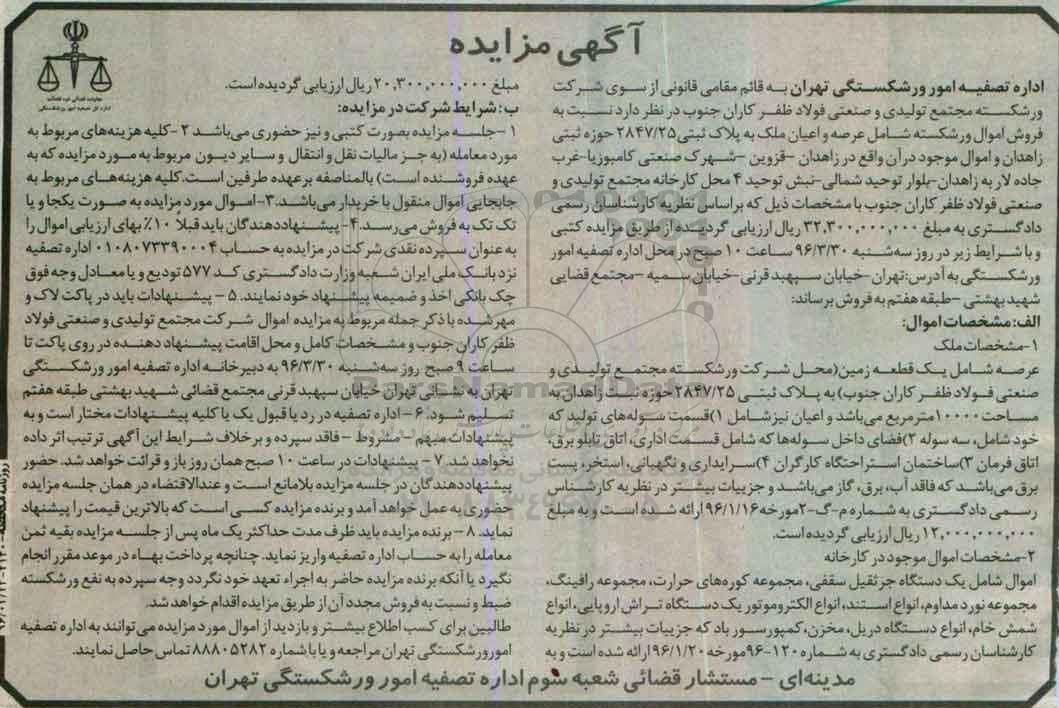 آگهی مزایده
اداره تصفیه امور ورشکستگی تهران به قائم مقامی قانونی از سوی شرکت
ورشکسته مجتمع تولیدی و صنعتی فولاد ظفر کاران جنوب در نظر دارد نسبت به
فروش اموال ورشکسته شامل عرصه و اعیان ملک به پلاک ثبتی ۲۸۴۷/۲۵ حوزه ثبتی
زاهدان و اموال موجود در آن واقع در زاهدان –قزوین –شهرک صنعتی کامبوزیا–غرب
جاده لار به زاهدان–بلوار توحید شمالی–نبش توحید ۴ محل کارخانه مجتمع تولیدی و
صنعتی فولاد ظفر کاران جنوب با مشخصات ذیل که براساس نظریه کارشناسان رسمی
دادگستری به مبلغ ۳۲,۳۰۰,۰۰۰,۰۰۰ ریال ارزیابی گردیده از طریق مزایده کتبی
و با شرایط زیر در روز سه‌شنبه ۹۶/۳/۳۰ ساعت ۱۰ صبح در محل اداره تصفیه امور
ورشکستگی به آدرس:تهران–خیابان سپهبد قرنی–خیابان سمیه–مجتمع قضایی
شهید بهشتی –طبقه هفتم به فروش برساند:
الف: مشخصات اموال:
۱–مشخصات ملک
عرصه شامل یک قطعه زمین(محل شرکت ورشکسته مجتمع تولیدی و
صنعتی فولاد ظفر کاران جنوب) به پلاک ثبتی ۲۸۴۷/۲۵ حوزه ثبت زاهدان به
مساحت ۱۰۰۰۰ مترمربع می‌باشد و اعیان نیز شامل ۱)قسمت سوله‌های تولید که
خود شامل، سه سوله ۲)فضای داخل سوله‌ها که شامل قسمت اداری، اتاق تابلو برق،
اتاق فرمان ۳)ساختمان استراحتگاه کارگران ۴)سرایداری و نگهبانی، استخر، پست
برق می‌باشد که فاقد آب، برق، گاز می‌باشد و جزییات بیشتر در نظریه کارشناس
رسمی دادگستری به شماره م–گ–۲مورخه ۹۶/۱/۱۶ ارائه شده است و به مبلغ
۱۲,۰۰۰,۰۰۰,۰۰۰ ریال ارزیابی گردیده است.
۲–مشخصات اموال موجود در کارخانه
اموال شامل یک دستگاه جرثقیل سقفی، مجموعه کوره‌های حرارت، مجموعه رافینگ،
مجموعه نورد مداوم، انواع استند، انواع الکتروموتور یک دستگاه تراش اروپایی، انواع
شمش خام، انواع دستگاه دریل، مخزن، کمپورسور باد که جزییات بیشتر در نظریه
کارشناسان رسمی دادگستری به شماره ۱۲۰–۹۶مورخه ۹۶/۱/۲۰ ارائه شده است و به
مبلغ ۲۰,۳۰۰,۰۰۰,۰۰۰ ریال ارزیابی گردیده است.
ب: شرایط شرکت در مزایده:
۱–جلسه مزایده بصورت کتبی و نیز حضوری می‌باشد ۲–کلیه هزینه‌های مربوط به
مورد معامله (به جز مالیات نقل و انتقال و سایر دیون مربوط به مورد مزایده که به
عهده فروشنده است) بالمناصفه برعهده طرفین است.کلیه هزینه‌های مربوط به
جابجایی اموال منقول با خریدار می‌باشد.۳–اموال مورد مزایده به صورت یکجا و یا
تک تک به فروش می‌رسد.۴–پیشنهاددهندگان باید قبلا ۱۰٪ بهای ارزیابی اموال را
به عنوان سپرده نقدی شرکت در مزایده به حساب ۰۱۰۸۰۷۳۳۹۰۰۰۴ اداره تصفیه
نزد بانک ملی ایران شعبه وزارت دادگستری کد ۵۷۷ تودیع و یا معادل وجه فوق
چک بانکی اخذ و ضمیمه پیشنهاد خود نمایند. ۵ – پیشنهادات باید در پاکت لاک و
مهر شده با ذکر جمله مربوط به مزایده اموال شرکت مجتمع تولیدی و صنعتی فولاد
ظفر کاران جنوب و مشخصات کامل و محل اقامت پیشنهاد دهنده در روی پاکت تا
ساعت ۹ صبح روز سه‌شنبه ۹۶/۳/۳۰ به دبیرخانه اداره تصفیه امور ورشکستگی
تهران به نشانی تهران خیابان سپهبد قرنی مجتمع قضائی شهید بهشتی طبقه هفتم
تسلیم شود. ۶–اداره تصفیه در رد یا قبول یک یا کلیه پیشنهادات مختار است و به
پیشنهادات مبهم – مشروط – فاقد سپرده و برخلاف شرایط این آگهی ترتیب اثر داده
نخواهد شد. ۷ – پیشنهادات در ساعت ۱۰ صبح همان روز باز و قرائت خواهد شد. حضور
پیشنهاددهندگان در جلسه مزایده بلامانع است و عندالاقتضاء در همان جلسه مزایده
حضوری به عمل خواهد آمد و برنده مزایده کسی است که بالاترین قیمت را پیشنهاد
نماید. ۸ – برنده مزایده باید ظرف مدت حداکثر یک ماه پس از جلسه مزایده بقیه ثمن
معامله را به حساب اداره تصفیه واریز نماید. چنانچه پرداخت بهاء در موعد مقرر انجام
نگیرد یا آنکه برنده مزایده حاضر به اجراء تعهد خود نگردد وجه سپرده به نفع ورشکسته
ضبط و نسبت به فروش مجدد آن از طریق مزایده اقدام خواهد شد.
طالبین برای کسب اطلاع بیشتر و بازدید از اموال مورد مزایده می‌توانند به اداره تصفیه
امور ورشکستگی تهران مراجعه و یا با شماره ۸۸۸۰۵۲۸۲ تماس حاصل نمایند.
مدینه‌ای – مستشار قضائی شعبه سوم اداره تصفیه امور ورشکستگی تهران
ParsNamadData